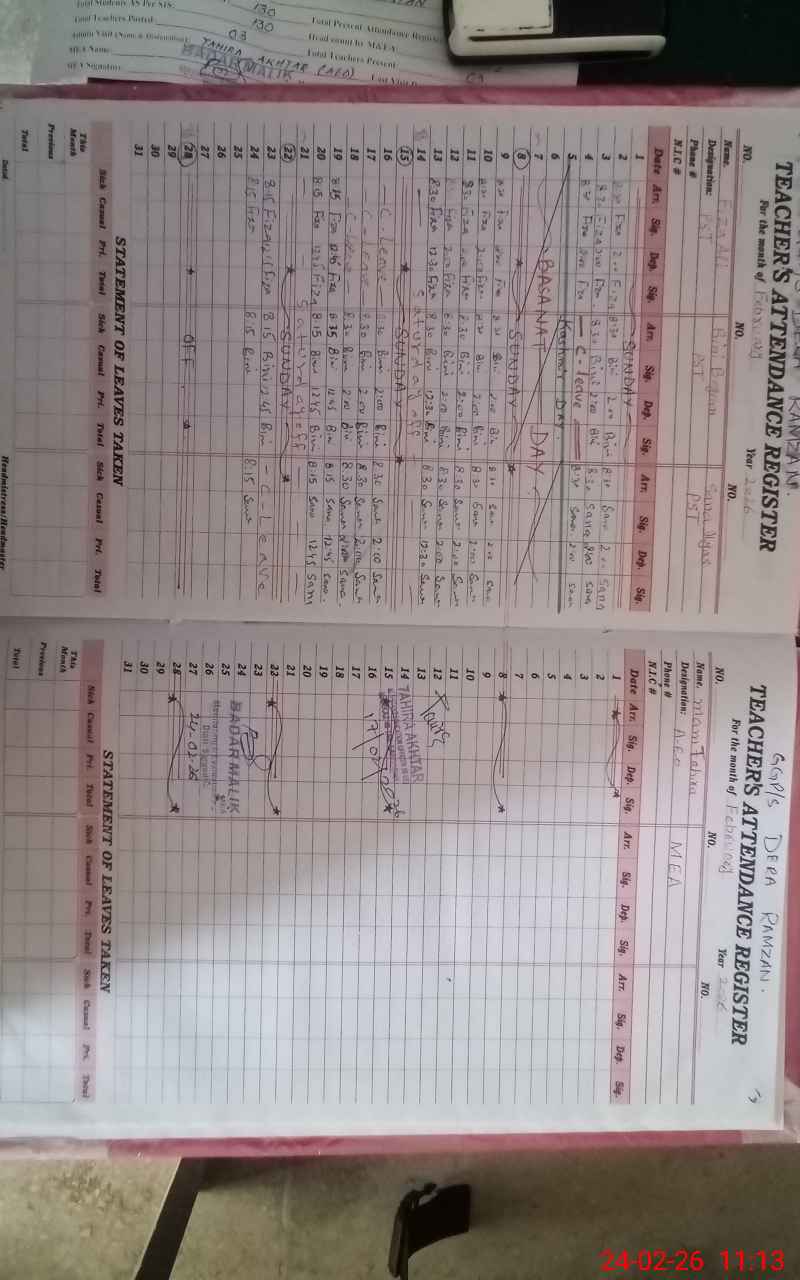 130
Total Teachers Posted:
130
Total Present Attendance
03
Head count by M&EA
TAHIRA AKHTAR (AEO)
Total Teachers Present
MEA Name:
BADAR MALIK
MEA Signature:
DERA RAMZAN.
TEACHER'S ATTENDANCE REGISTER
For the month of February Year 2026
NO. NO. NO.
Name. Fiza Ali Bini Sana Ilyas
Designation: PST PST PST
Phone #
N.I.C #
Date Arr. Sig. Dep. Sig. Arr. Sig. Dep. Sig. Arr. Sig. Dep. Sig.
1 SUNDAY
2 8:30 Fiza 2:00 Fiza 8:30 Bini 2:00 Bini 8:30 Sana 2:00 Sana
3 8:30 Fiza 2:00 Fiza 8:30 Bini 2:00 Bini 8:30 Sana 2:00 Sana
4 8:30 Fiza 2:00 Fiza C-leave 8:30 Sana 2:00 Sana
5 Kashmir DAY.
6
7 BASANAT DAY
8 SUNDAY
9 8:30 Fiza 2:00 Fiza 8:30 Bini 2:00 Bini 8:30 Sana 2:00 Sana
10 8:30 Fiza 2:00 Fiza 8:30 Bini 2:00 Bini 8:30 Sana 2:00 Sana
11 8:30 Fiza 2:00 Fiza 8:30 Bini 2:00 Bini 8:30 Sana 2:00 Sana
12 Fiza 2:00 Fiza 8:30 Bini 2:00 Bini 8:30 Sana 2:00 Sana
13 8:30 Fiza 12:30 Fiza 8:30 Bini 12:30 Bini 8:30 Sana 12:30 Sana
14 Saturday off
15 SUNDAY
16 C-Leave 8:30 Bini 2:00 Bini 8:30 Sana 2:00 Sana
17 C-Leave 8:30 Bini 2:00 Bini 8:30 Sana 2:00 Sana
18 C-Leave 8:30 Bini 2:00 Bini 8:30 Sana Sana
19 8:15 Fiza 12:45 Fiza 8:15 Bini 12:45 Bini 8:15 Sana 12:45 Sana
20 8:15 Fiza 12:45 Fiza 8:15 Bini 12:45 Bini 8:15 Sana 12:45 Sana
21 Saturday off
22 SUNDAY
23 8:15 Fiza Fiza 8:15 Bini 12:45 Bini C-Leave
24 8:15 Fiza 8:15 Bini 8:15 Sana
25
26
27
28 OFF
29
30
31
STATEMENT OF LEAVES TAKEN
Sick Casual Pri. Total Sick Casual Pri. Total Sick Casual Pri. Total
This Month
Previous
Total
Headmistress/Headmaster
GGP/S DERA RAMZAN.
TEACHER'S ATTENDANCE REGISTER
For the month of February Year 2026
NO. NO. NO.
Name. Mam Tahira
Designation: AEO MEA
Phone #
N.I.C #
Date Arr. Sig. Dep. Sig. Arr. Sig. Dep. Sig. Arr. Sig. Dep. Sig.
1
2
3
4
5
6
7
8
9
10
11
12
13
14 TAHIRA AKHTAR
15
16 17/02/2026
17
18
19
20
21
22
23
24 BADAR MALIK
25
26
27 24-02-26
28
29
30
31
STATEMENT OF LEAVES TAKEN
Sick Casual Pri. Total Sick Casual Pri. Total Sick Casual Pri. Total
This Month
Previous
Total
24-02-26 11:13